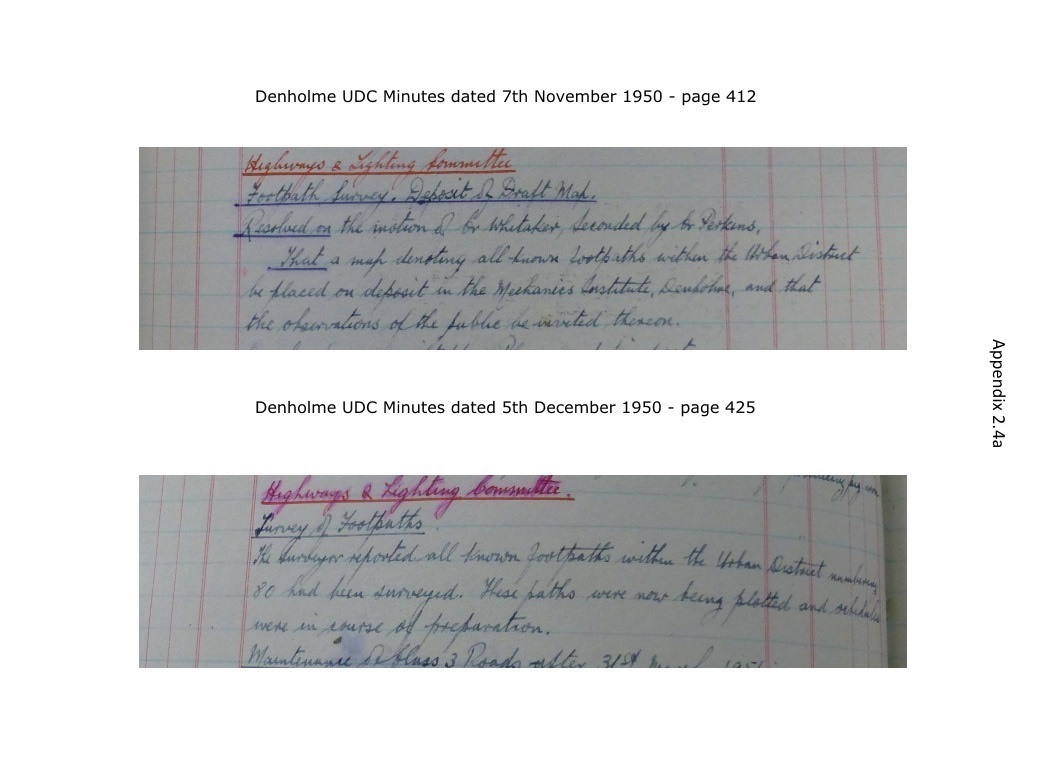 Denholme UDC Minutes dated 7th November 1950 - page 412
Highways & Lighting Committee
Footpath Survey. Deposit of Draft Map.
Resolved on the motion of Cr Whitaker, Seconded by Cr Perkins,
That a map denoting all known footpaths within the Urban District
be placed on deposit in the Mechanics Institute, Denholme, and that
the observations of the public be invited thereon.
Denholme UDC Minutes dated 5th December 1950 - page 425
Highways & Lighting Committee.
Survey of Footpaths
The Surveyor reported all known footpaths within the Urban District numbering
80 had been surveyed. These paths were now being plotted and schedules
were in course of preparation.
Maintenance of Class 3 Roads after 31st March 1951
Appendix 2.4a